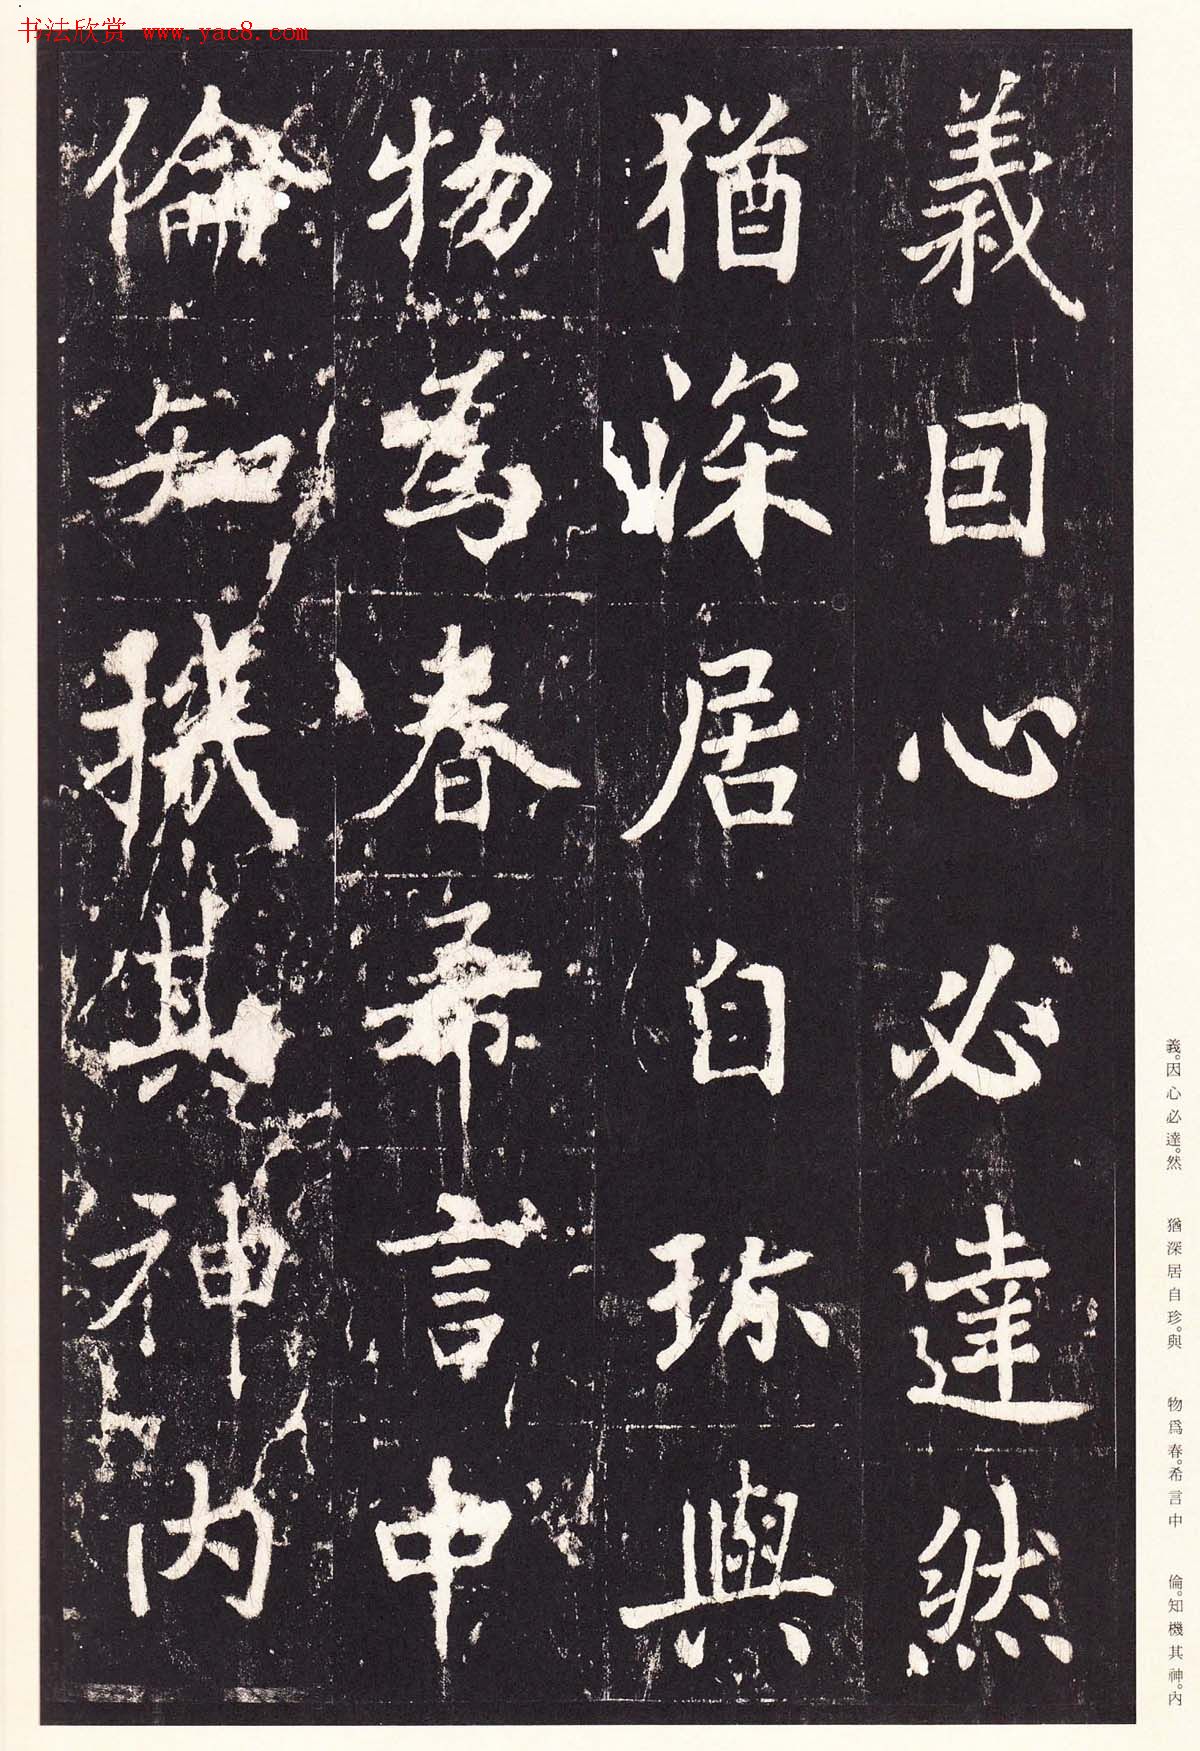 书法欣赏 www.yac8.com
義因心必達然
猶深居自珎與
物為春希言中
倫知機其神内
義。因心必達。然　猶深居自珍。與　物爲春。希言中　倫。知機其神。內